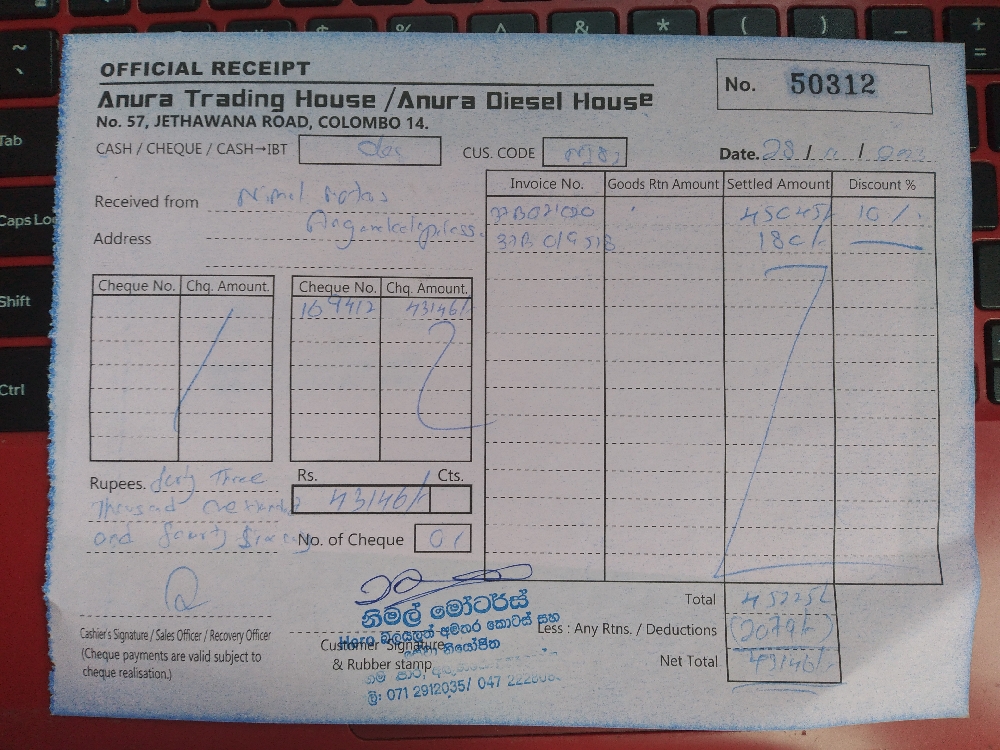 OFFICIAL RECEIPT
Anura Trading House / Anura Diesel House
No. 57, JETHAWANA ROAD, COLOMBO 14.
No. 50312
CASH / CHEQUE / CASH→IBT
CUS. CODE
Date. 28 / /
Received from Nimal
Address
Invoice No. Goods Rtn Amount Settled Amount Discount %
45045/- 10 /.
180/-
Cheque No. Chq. Amount.
Cheque No. Chq. Amount.
169412 43146/-
Rupees. forty Three
Thousand one Hundred
and fourty Six
Rs. Cts.
43146/-
No. of Cheque 01
Total 45225/-
Less : Any Rtns. / Deductions (2079/-)
Net Total 43146/-
Cashier's Signature / Sales Officer / Recovery Officer
(Cheque payments are valid subject to
cheque realisation.)
Customer Signature
& Rubber stamp
නිමල් මෝටර්ස්
Hero වලයලුත් අමතර කොටස් සහ
නියෝජිත
දුර: 071 2912035/ 047